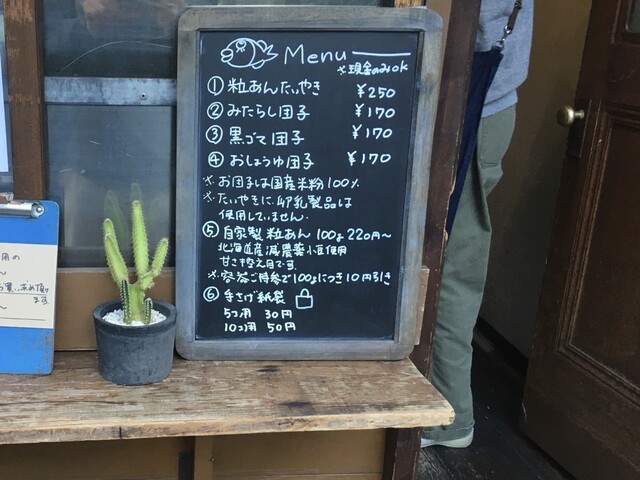 Menu
※現金のみok
① 粒あんたいやき ¥250
② みたらし団子 ¥170
③ 黒ゴマ団子 ¥170
④ おしょうゆ団子 ¥170
※お団子は国産米粉100%
※たいやきに卵乳製品は
使用していません
⑤ 自家製 粒あん 100g 220円～
北海道産減農薬小豆使用
甘さ控え目です
※容器ご持参で100gにつき10円引き
⑥ 手さげ紙袋
5コ用 30円
10コ用 50円
用の
ます